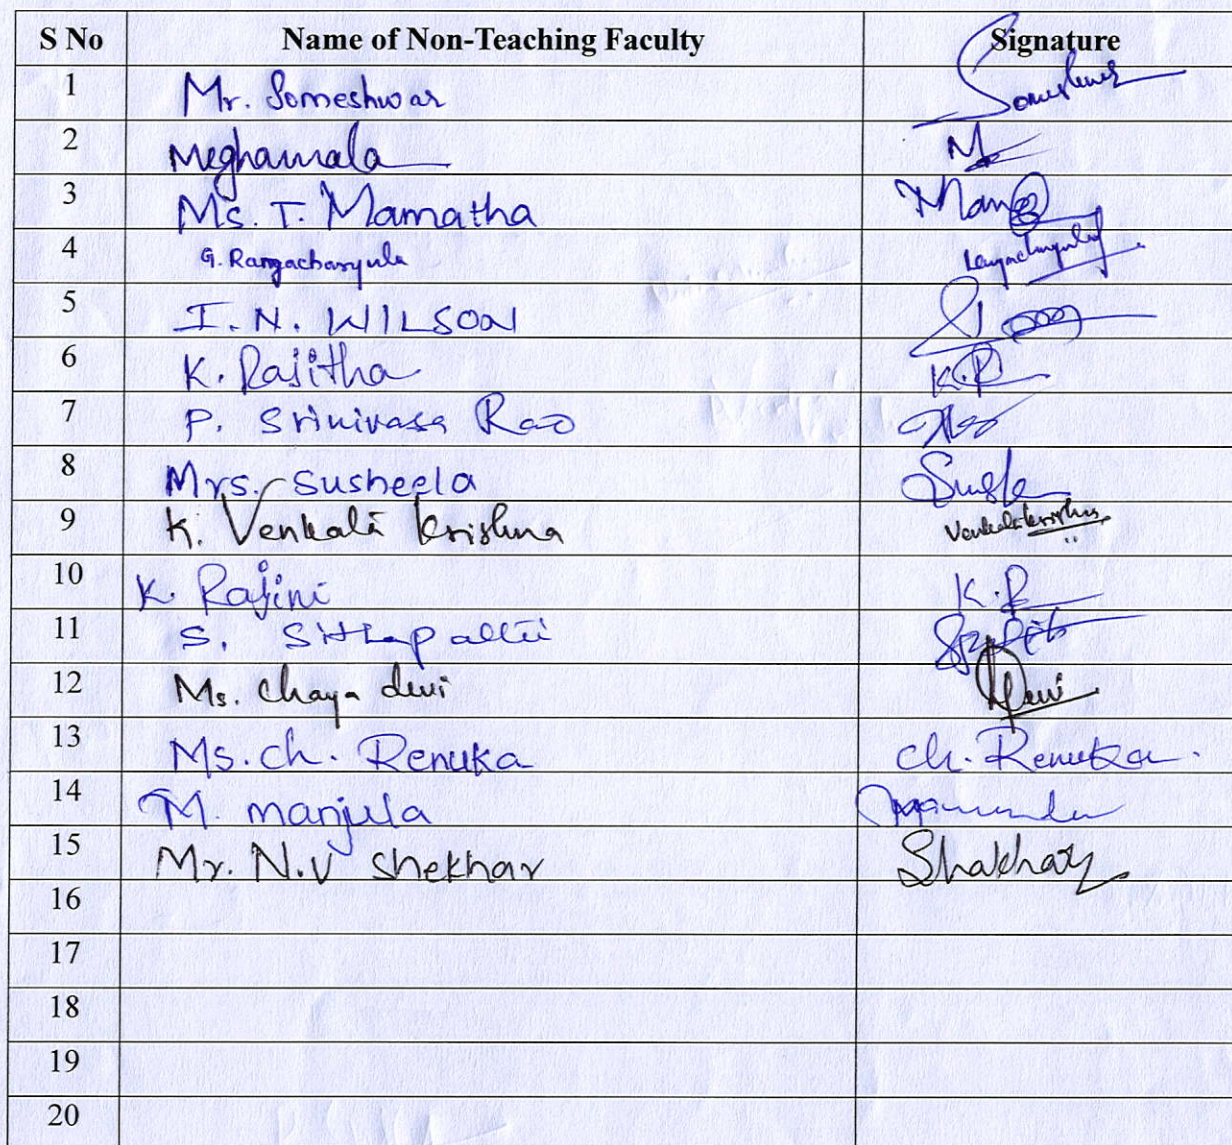 S No Name of Non-Teaching Faculty Signature
1 Mr. Someshwar
2 Meghamala M
3 Ms. T. Mamatha
4 G. Rangacharyulu
5 I. N. WILSON
6 K. Rajitha K.R
7 P. Srinivasa Rao
8 Mrs. Susheela
9 K. Venkati krishna Venkatikrishna
10 K. Rajini K.R
11 S.
12 Ms. Chaya devi Devi
13 Ms. ch. Renuka ch. Renuka.
14 M. manjula
15 Mr. N.V Shekhar Shakhar
16
17
18
19
20